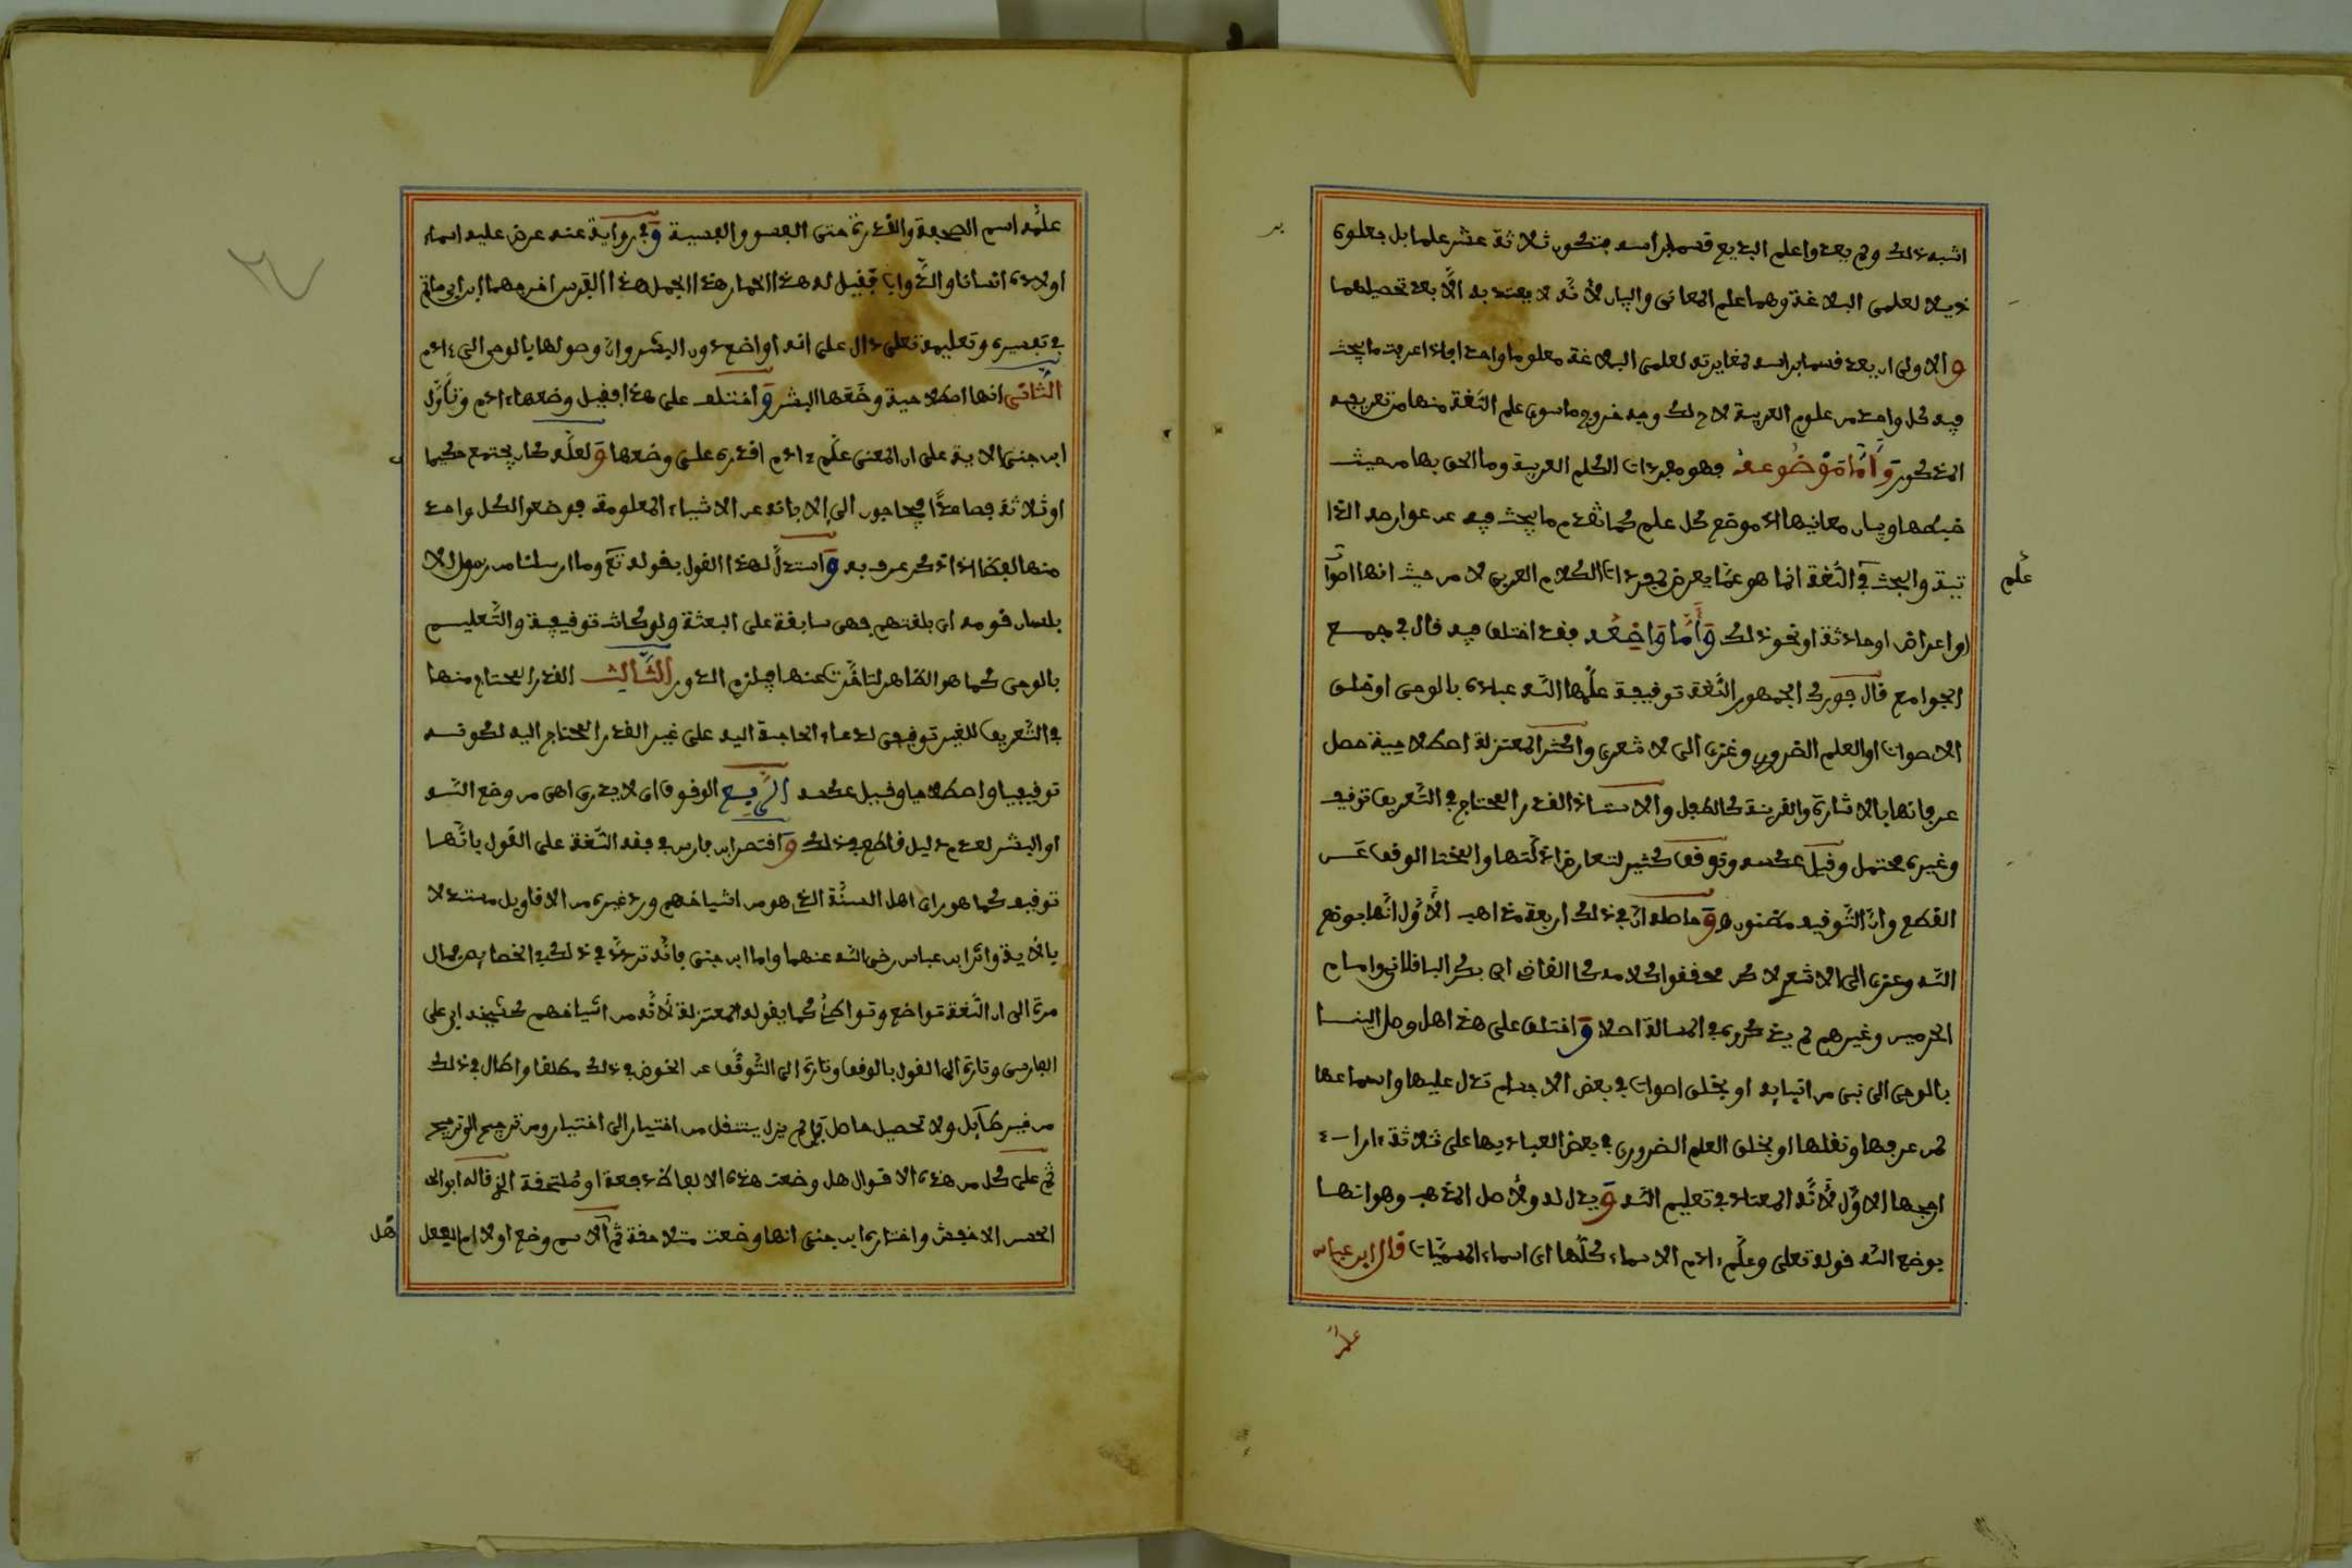 اشبه ذلك ولم يعدوا علم البديع قسما براسه فتكون ثلاثة عشر علما بل جعلوه
ذيلا لعلمي البلاغة وهما علم المعاني والبيان لأنّه لا يعتد به الّا بعد تحصيلهما
و الاولى ان يعد قسما براسه لمغايرته لعلمي البلاغة معلوما واحدا فاذا عرفت ما يبحث
فيه كل واحد من علوم العربية لاح لك وجه خروج ما سوى علم اللّغة منها من تعريفه
المذكور وَأَمَّا مَوْضُوعه فهو مفردات الكلم العربية وما الحق بها من حيث
ضبطها وبيان معانيها اذ موضع كل علم كما تقدم ما يبحث فيه عن عوارضه الذا
علم
تية والبحث في اللّغة انما هو عمّا يعرض لمفردات الكلام العربي لا من حيث انها اصوات
او اعراض او حادثة او نحو ذلك وَأَمَّا وَاضِعُه فقد اختلف فيه قال في جمع
الجوامع قال جورك الجمهور اللّغة توقيفية علّمها اللّه عباده بالوحي او خلق
الاصوات او العلم الضروري وعزي الى لا شعري واكثر المعتزلة اصطلاحية حصل
عرفانها بالاشارة والقرينة كالطفل والاستاذ القدر المحتاج في التّعريف توقيف
وغيره محتمل وقيل عكسه وتوقف كثير لتعارض ادلّتها والمختا الوقف عَن
القطع وانّ التّوقيف مظنون ه وَحاصله انّ في ذلك اربعة مذاهب الأَوّل انّها بوضع
اللّه وعزى الى الاشعري لا كن محققوا كلامه كا القاضي ابي بكر الباقلاني وامام
الحرمين وغيرهم لم يذكروه في المسالة اصلا وَاختلف على هذا هل وصل الينا
بالوحي الى نبي من انبيايه او بخلق اصوات في بعض الاجسام تدل عليها واسماعها
لمن عرفها ونقلها او بخلق العلم الضروري في بعض العباد بها على ثلاثة ءارا ـ ء
ارجحها الاوّل لأنّه المعتاد في تعليم اللّه وَيدل له ولأصل المذهب وهو انها
بوضع اللّه قوله تعلى وعلّم ءادم الاسماء كلّها اى اسماء المسمّيات قال ابن عباس
علّمـ
علّمه اسم الصحفة والقدرة حتى الفسو والفسية وَفي رواية عنه عرض عليه اسماء
اولاده انسانا والدّوابّ فقيل له هذا الحمار هذا الجمل هذا الفرس اخرجهما ابن ابي حاتم
في تفسيره وتعليمه تعلى دال على انه الواضع دون البشر وانّ وصولها بالوحي الى ءادم
الثانى انها اصطلاحية وضَعَها البشر وَاختلف على هذا فقيل وضعها ءادم وتأوّل
ابن جني الاية على ان المعنى علّم ءادم اقدره على وضعها وَلعلّه كان يجتمع حكيما
او ثلاثة فصاعدًا فيحتاجون الى الابانة عن الاشياء المعلومة فوضعوا لكل واحد
منها لفظا اذا ذكر عرف به وَاستدلّ لهذا القول بقوله تع وما ارسلنا من رسول الا
بلسان قومه اى بلغتهم فهى سابقة على البعثة ولو كانت توقيفية والتّعليم
بالوحي كما هو الظّاهر لتاخّرت عنها فيلزم الدور الثَّالِث القدر المحتاج منها
في التّعريف للغير توقيفي لدعاء الحاجة اليه على غير القدر المحتاج اليه لكونه
توقيفيا واصطلاحيا وقيل عكسه الرَّابِع الوقوف اى لا يدرى اهى من وضع اللّه
او البشر لعدم دليل قاطع في ذلك وَاقتصر ابن فارس في فقه اللّغة على القول بانّها
توقيف كما هو راى اهل السنّة الذي هو من اشياخهم ورد غيره من الاقاويل مستدلا
بالأية واثر ابن عباس رضى اللّه عنهما واما ابن جني فانّه تردّد في ذلك في الخصايص فمال
مرة الى ان اللّغة تواضع وتواطئ كما يقوله المعتزلة لأنّه من اشياخهم كشيخه ابي على
الفارسي وتارة الى القول بالوقف وتارة الى التّوقّف عن الخوض في ذلك مطلقا واطال في ذلك
من غير طآيل ولا تحصيل حاصل فلم يزل يتنقل من اختيار الى اختيار ومن ترجيح الى ترجيح
ثم على كل من هذه الاقوال هل وضعت هذه الالفاظ دفعة او متلاحقة الخ قاله ابو الحـ
الحسن الاخفش واختاره ابن جني انها وضعت متلاحقة ثم الاسم وضع اولا ام الفعل
هل